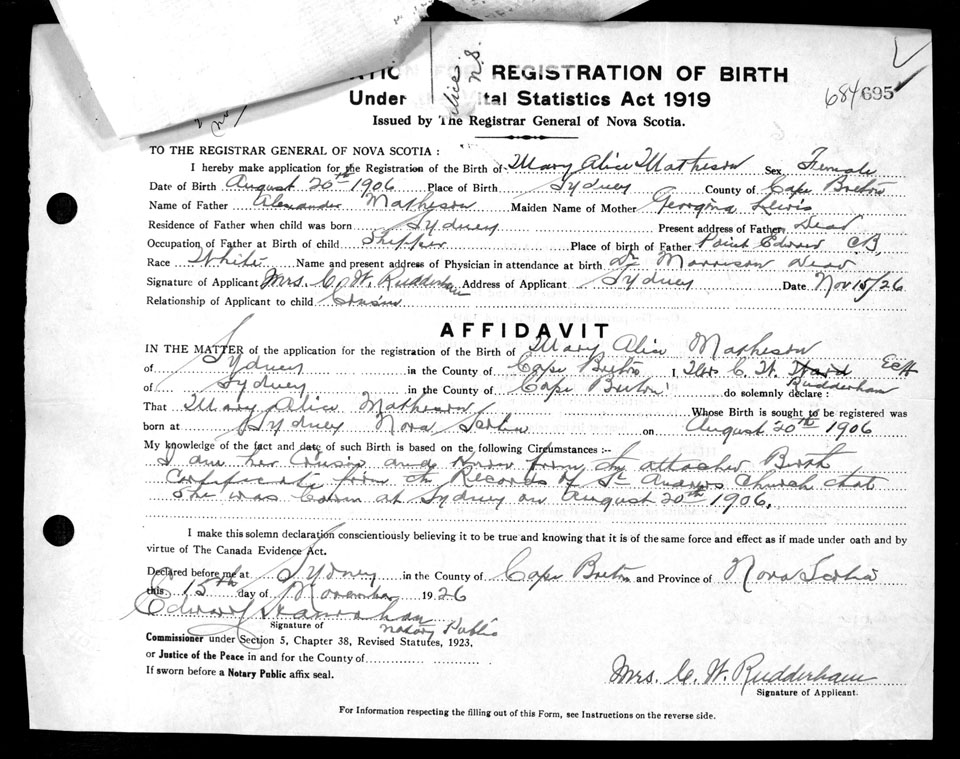 Alice
N.S.
REGISTRATION OF BIRTH
Under ital Statistics Act 1919
684695
Issued by The Registrar General of Nova Scotia.
TO THE REGISTRAR GENERAL OF NOVA SCOTIA :
I hereby make application for the Registration of the Birth of Mary Alice Matheson Sex Female
Date of Birth August 20th 1906 Place of Birth Sydney County of Cape Breton
Name of Father Alexander Matheson Maiden Name of Mother Georgina Lewis
Residence of Father when child was born Sydney Present address of Father Dead
Occupation of Father at Birth of child Shipper Place of birth of Father Point Edward CB,
Race White Name and present address of Physician in attendance at birth Dr Morrison Dead
Signature of Applicant Mrs. C. W. Rudderham Address of Applicant Sydney Date Nov 15/26
Relationship of Applicant to child Cousin
AFFIDAVIT
IN THE MATTER of the application for the registration of the Birth of Mary Alice Matheson
of Sydney in the County of Cape Breton I, Mrs C. W. Ward
of Sydney in the County of Cape Breton Rudderham do solemnly declare :
That Mary Alice Matheson Whose Birth is sought to be registered was
born at Sydney Nova Scotia on August 20th 1906
My knowledge of the fact and date of such Birth is based on the following Circumstances :--
I am her Cousin and know from the attached Birth
Certificate from the Records of St Andrews Church that
she was born at Sydney on August 20th 1906.
I make this solemn declaration conscientiously believing it to be true and knowing that it is of the same force and effect as if made under oath and by
virtue of The Canada Evidence Act.
Declared before me at Sydney in the County of Cape Breton and Province of Nova Scotia
this 15th day of November 1926
Edward
Signature of Notary Public
Commissioner under Section 5, Chapter 38, Revised Statutes, 1923,
or Justice of the Peace in and for the County of
If sworn before a Notary Public affix seal.
Mrs. C. W. Rudderham
Signature of Applicant.
For Information respecting the filling out of this Form, see Instructions on the reverse side.